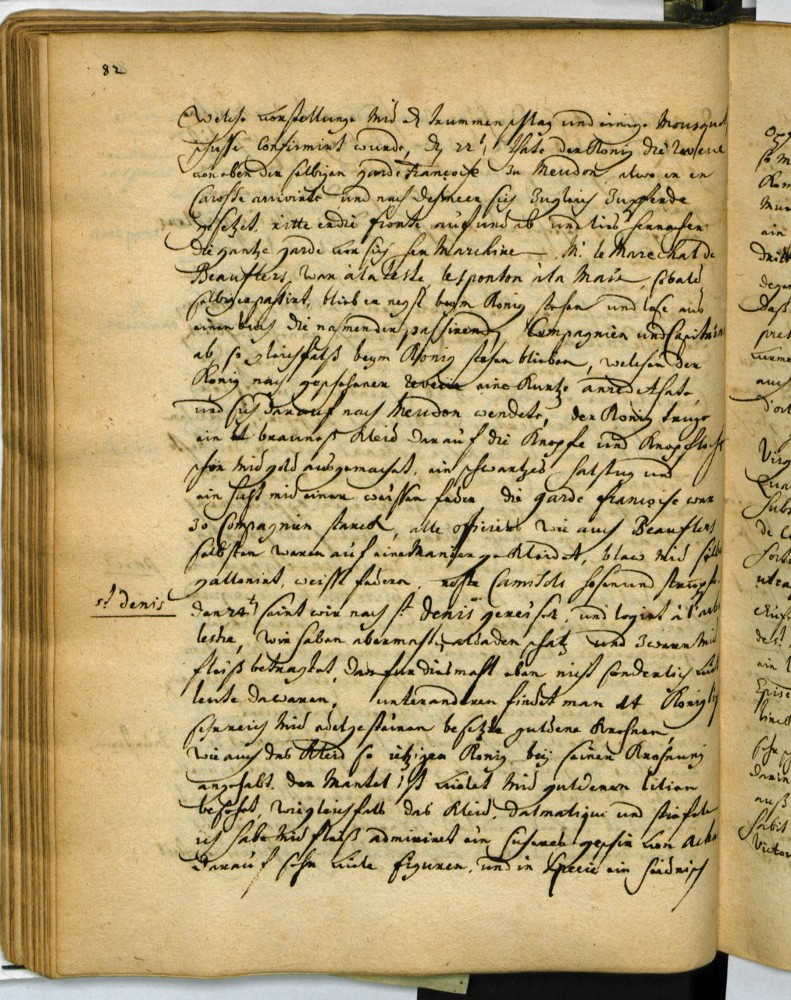 82
welche vorstellunge mid dem trummenschlag und einige Mousquet
schusse confirmirt wurde, den 22t. hate der König die reveue
von eben der selbigen garde françoise zu Meudon alwo er en
Carosse arrivirte und nach desmeer sich zugleich zu pferde
gesetzt, ritte en die fronte auf und ab und lies hernacher
die gantze garde vor sich her Marchire. Mr. le Marechal de
Beauflers, war à la teste, lesponton à la Main, sobald
selbiger passirt, blieb er negst beym König stehen und lase aus
einem buch die nahmen der passirende Compagnien und Capitains
ab, so gleichfals beym König stehen blieben, welchen der
König nach geschehener reveue eine kurtze anred thate,
und sich darauf nach Meudon wendete, der König truge
ein braunes kleid darauf die Knopfe und Knopflocher
schön mid gold ausgemacht, ein schwartzes halstug und
ein huht mid einem weissen feder die garde françoise war
30 Compagnien starck, alle officiers wie auch Beauflers
selbsten waren auf eine Manier gekleidet, blaw mid
gallonirt, weisse federn, rohte Camisols hosen und
st Denis
den 24t seint wir nach st Denis gereiset, und logirt à l'
wir haben abermahls schatz und
fleis betragtet, dar fur diesmahl eben nicht sonderlich viel
leute da waren, unter anderen findet man dt Königlich
sehr reich mid edelgesteinen besetzte guldene Krohnen,
wie auch das kleid so itzigen König bey seiner Krohnung
angehabt. der Mantel ist violet mid guldenen lilien
besehet, wie gleichfals das kleid, dalmatique und stiefele
ich habe mid fleis admiriret ein geschir von
darauf sehr viele figuren, und in specie ein heidnisch